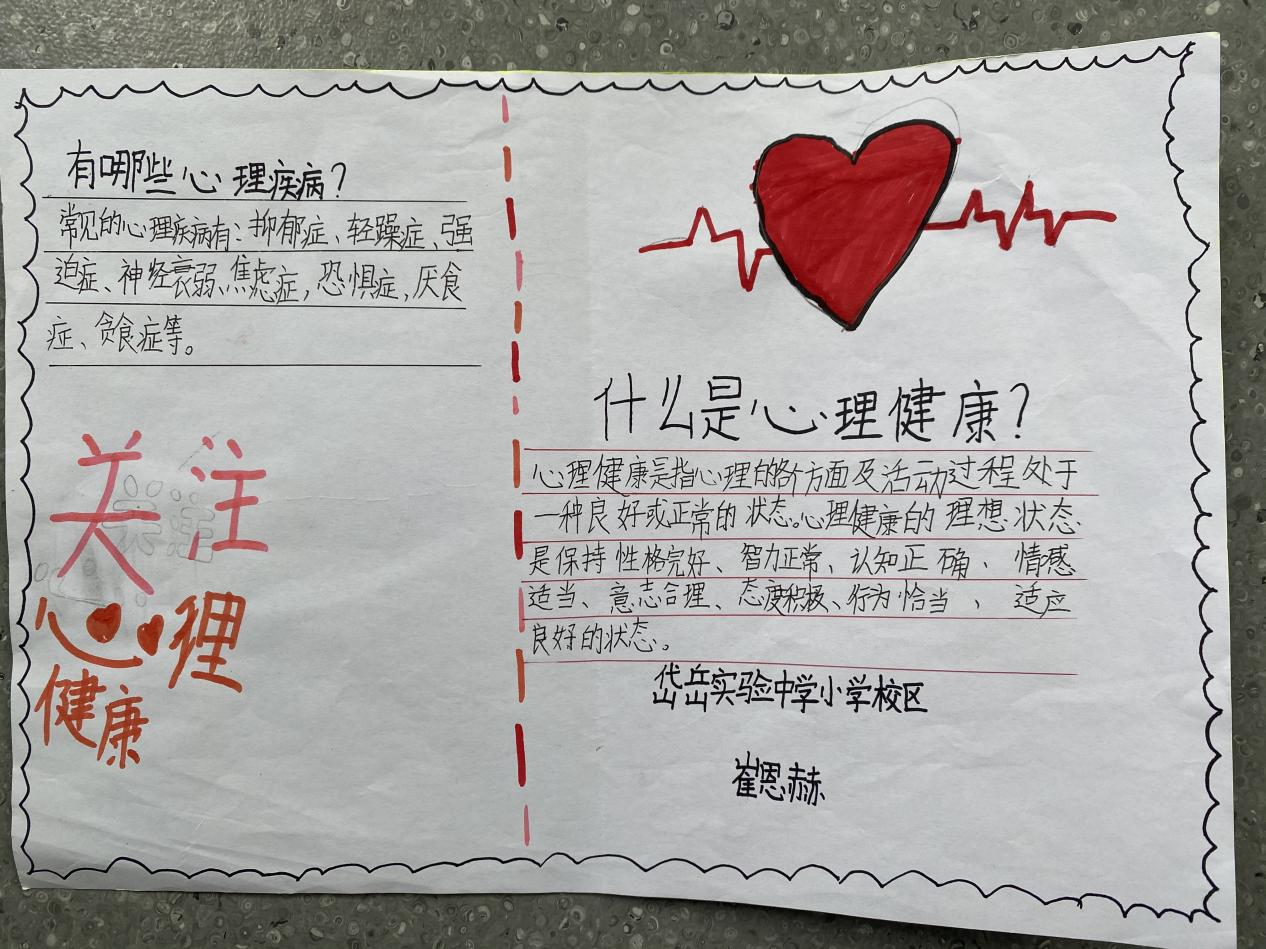 有哪些心理疾病？
常见的心理疾病有：抑郁症、轻躁症、强
迫症、神经衰弱、焦虑症，恐惧症、厌食
症、贪食症等。
关注
心理
健康
什么是心理健康？
心理健康是指心理的各个方面及活动过程处于
一种良好或正常的状态。心理健康的理想状态
是保持性格完好、智力正常、认知正确、情感
适当、意志合理、态度积极、行为恰当、适应
良好的状态。
岱岳实验中学小学校区
崔恩赫